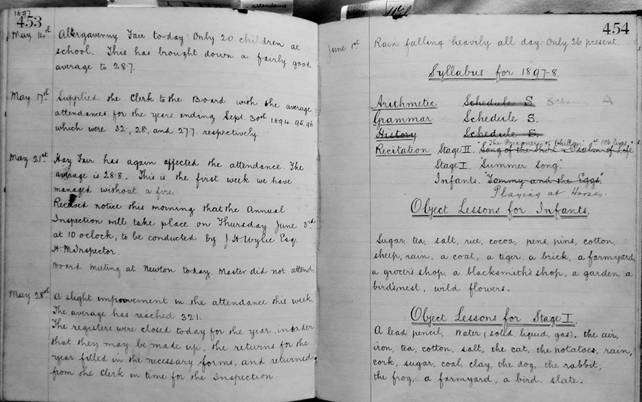 1897
453
May 14th Abergavenny Fair to-day. Only 20 children at
school. This has brought down a fairly good
average to 28.7.
May 17th Supplied the Clerk to the Board with the average
attendance for the years ending Sept. 30th 1894. 95. 96
which were 32, 28, and 27.7 respectively.
May 21st Hay Fair has again effected the attendance. The
average is 28.8. This is the first week we have
managed without a fire.
Received notice this morning that the Annual
Inspection will take place on Thursday June 3rd
at 10 o'clock, to be conducted by J. H. Wylie Esq.
H. M. Inspector.
Board meeting at Newton to-day. Master did not attend.
May 28th A slight improvement in the attendance this week.
The average has reached 32.1.
The registers were closed today for the year, in order
that they may be made up, the returns for the
year filled in the necessary forms, and returned
from the Clerk in time for the Inspection.
454
June 1st Rain falling heavily all day. Only 26 present.
Syllabus for 1897-8.
Arithmetic Schedule S. A
Grammar Schedule S.
History Schedule S.
Recitation Stage II. "Song of the Psalm of Life
Stage I "Summer Song"
Infants "Tommy and the Eggs"
Playing at Horses
Object Lessons for Infants.
Sugar, tea, salt, rice, cocoa, pens, pins, cotton,
sheep, rain, a coat, a tiger, a brick, a farmyard,
a grocer's shop, a blacksmith's shop, a garden, a
bird's nest, wild flowers.
Object Lessons for Stage I.
A lead pencil, Water, (solid, liquid, gas), the air,
iron, tea, cotton, salt, the cat, the potatoes, rain,
cork, sugar, coal, clay, the dog, the rabbit,
the frog, a farmyard, a bird, slate.